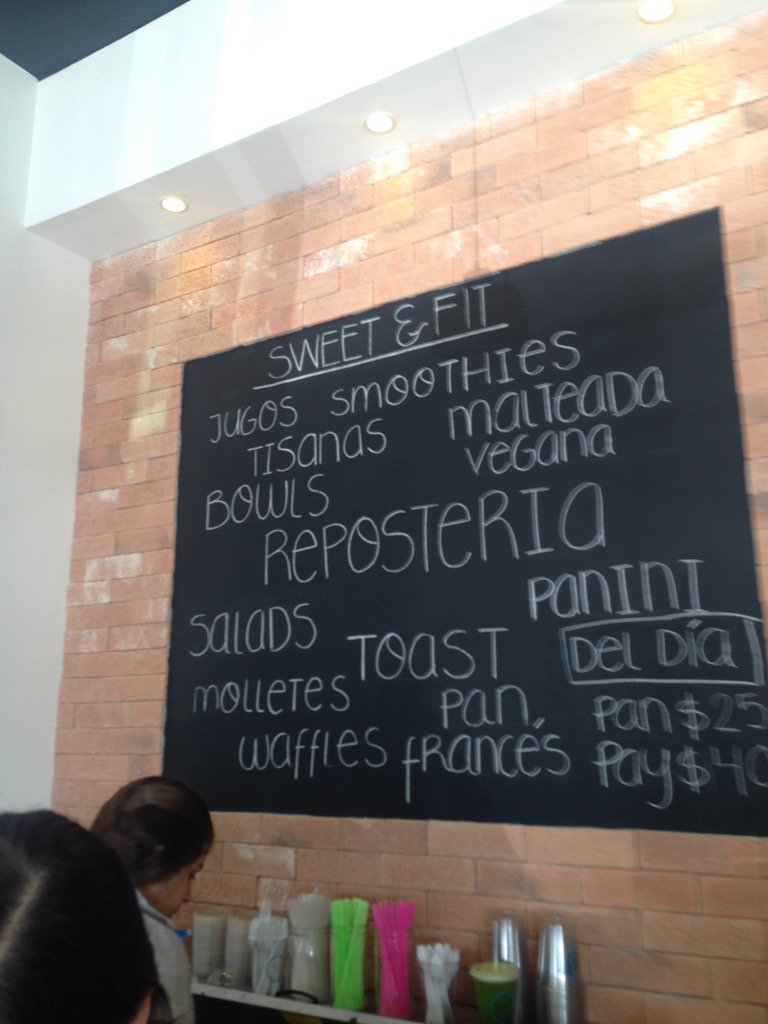 SWEET & FIT
JUGOS SMOOTHIES
TISANAS MALTEADA
VEGANA
BOWLS
REPOSTERIA
PANINI
SALADS TOAST DEL DÍA
MOLLETES PAN PAN $25
WAFFLES FRANCÉS PAY $40